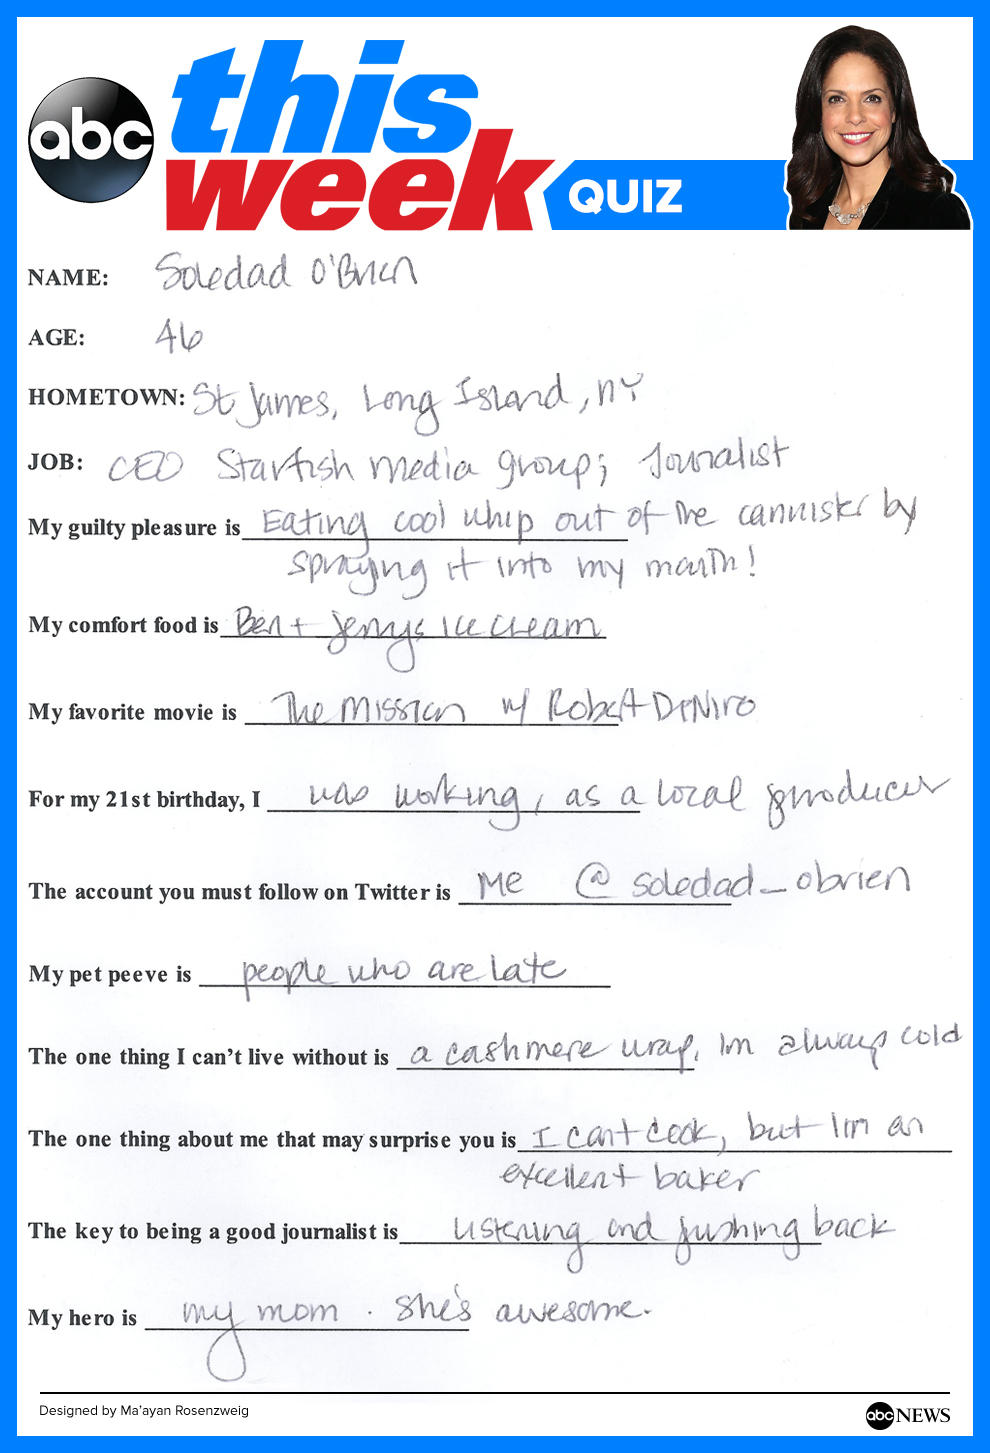 abc
this
week QUIZ
NAME: Soledad O'Brien
AGE: 46
HOMETOWN: St James, Long Island, NY
JOB: CEO Starfish Media Group; Journalist
My guilty pleasure is Eating cool whip out of the cannister by
spraying it into my mouth!
My comfort food is Ben + Jerrys Ice cream
My favorite movie is The Mission w/ Robert DeNiro
For my 21st birthday, I was working, as a local producer
The account you must follow on Twitter is Me @soledad_obrien
My pet peeve is people who are late
The one thing I can't live without is a cashmere wrap, Im always cold
The one thing about me that may surprise you is I cant cook, but I'm an
excellent baker
The key to being a good journalist is listening and pushing back
My hero is my mom. She's awesome.
Designed by Ma'ayan Rosenzweig
abc NEWS